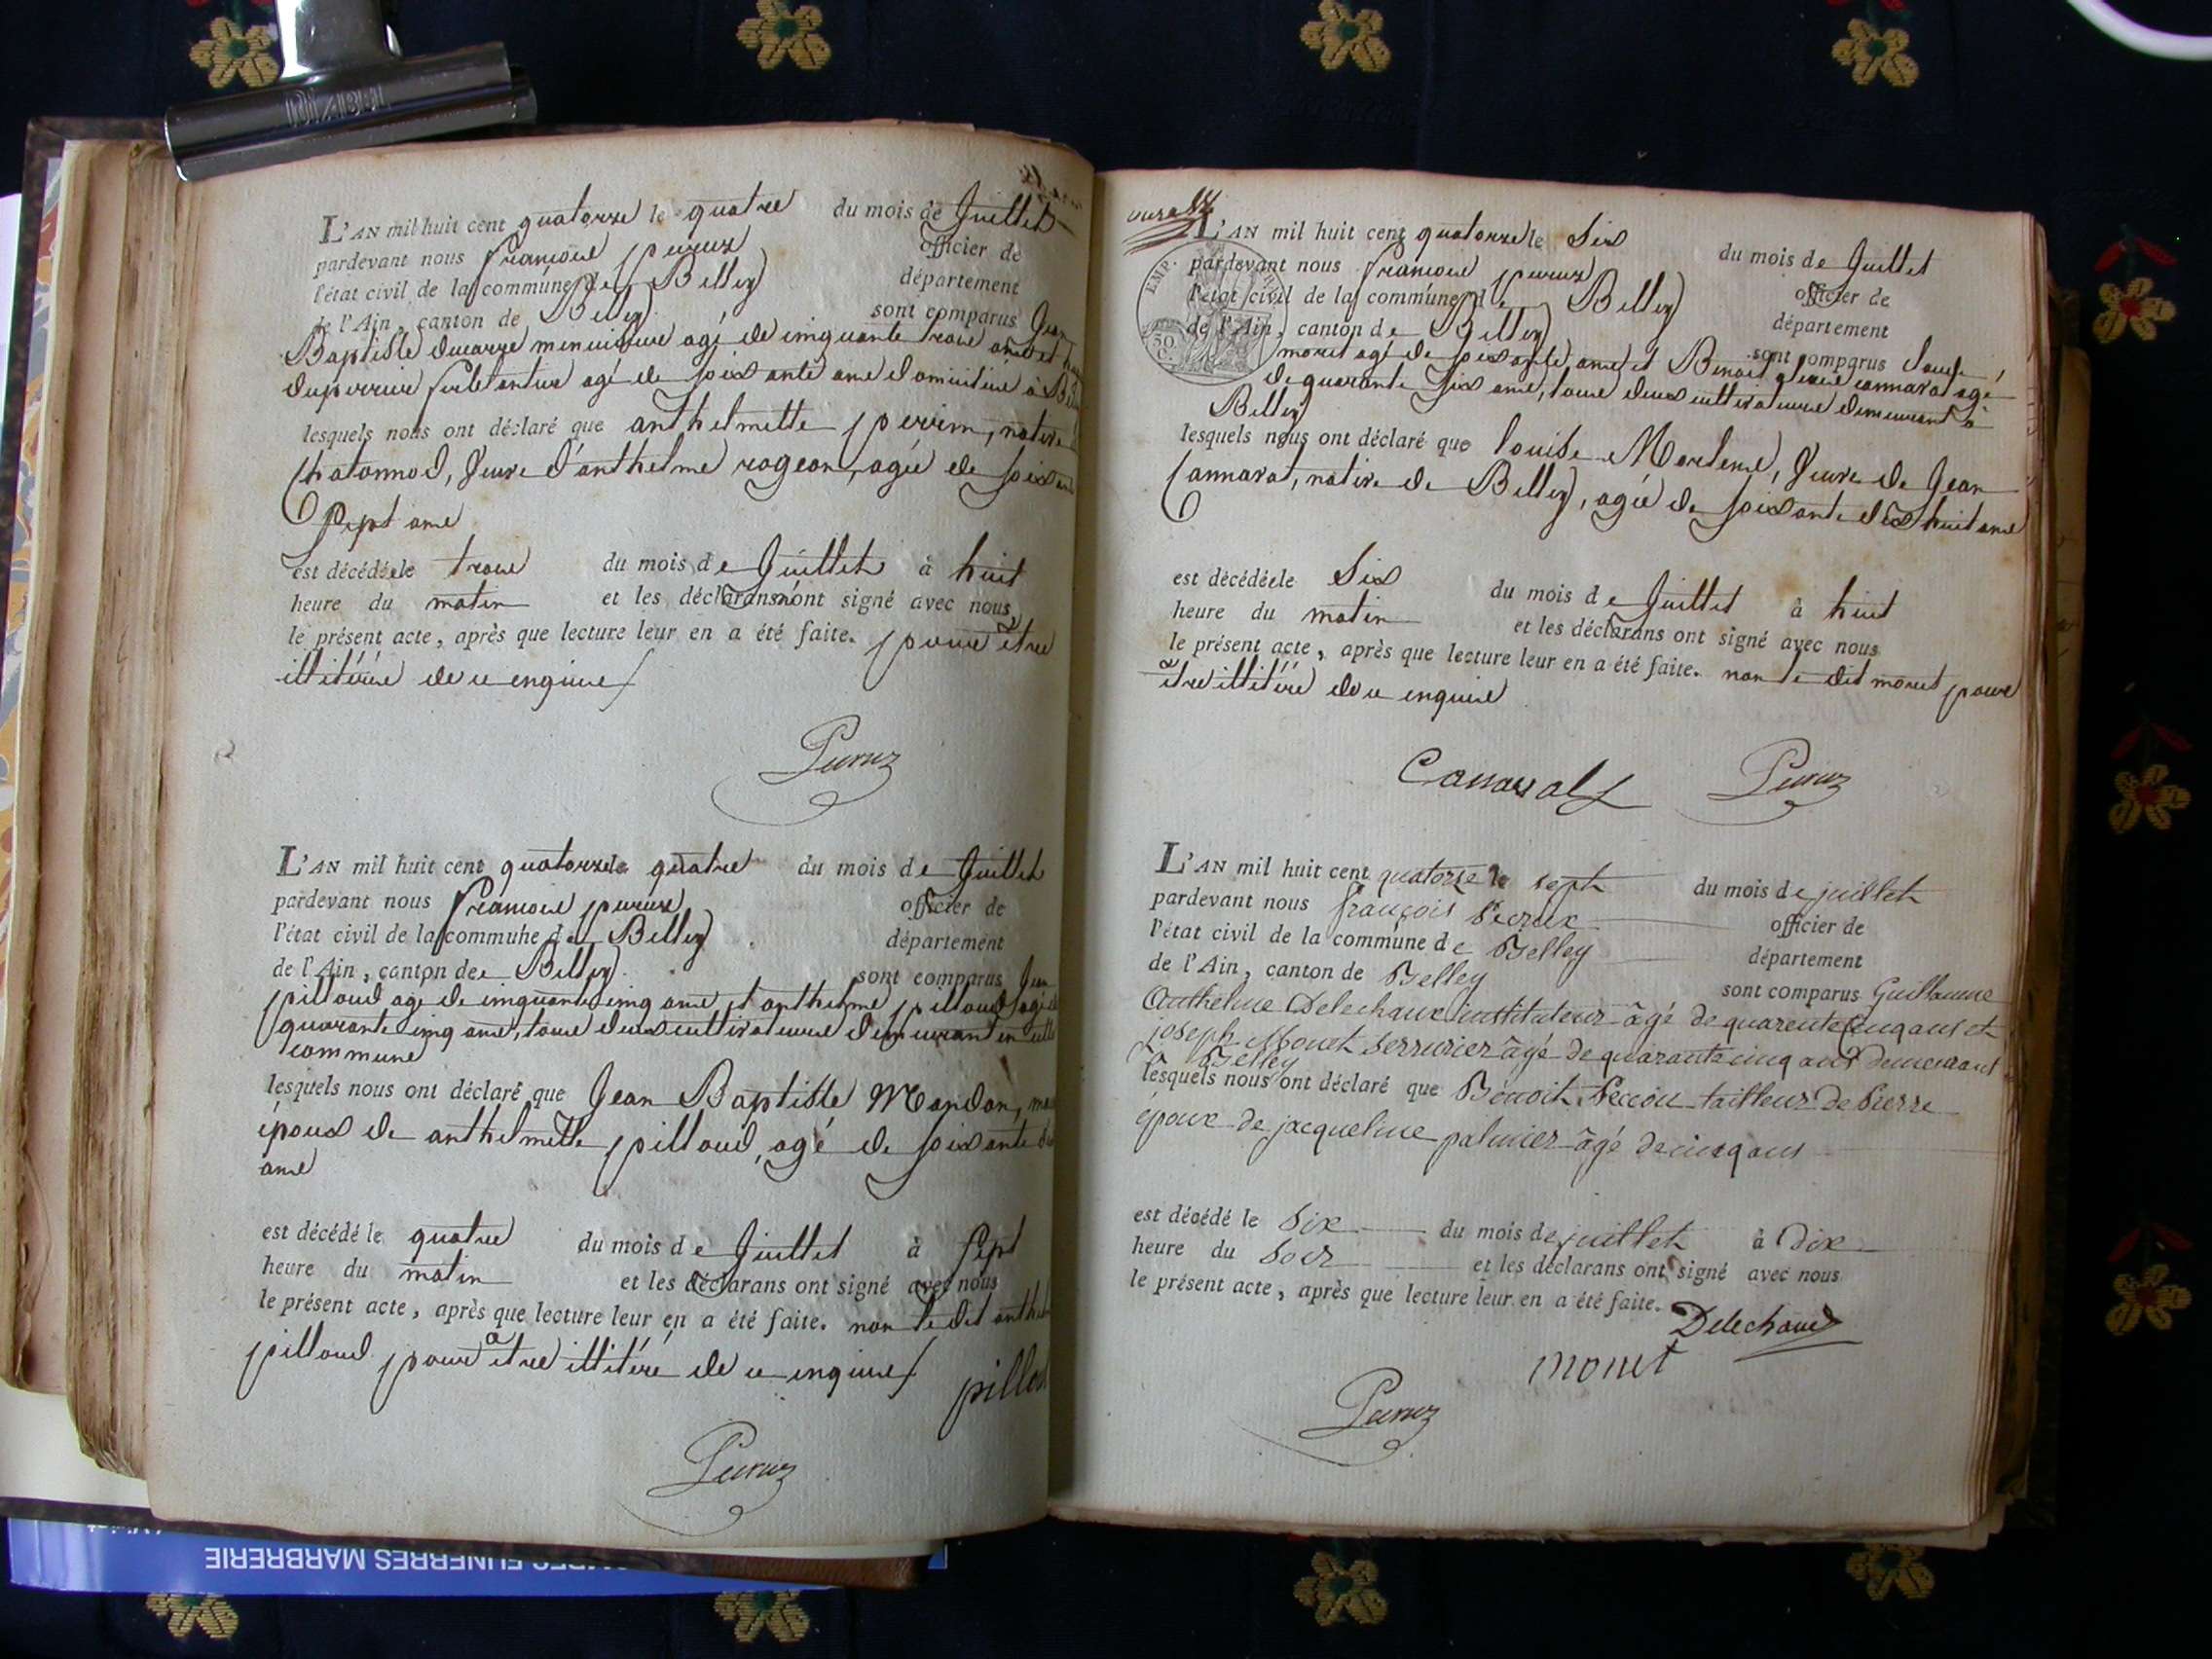 DIABEL
L'AN mil huit cent quatorze le quatre du mois de Juillet
pardevant nous françois peruz officier de
l'état civil de la commune de Belley département
de l'Ain, canton de Belley sont comparus Jean
Baptiste ducarre menuisier agé de cinquante trois ans et
duperrier ferblantier agé de soixante ans domicilié à
lesquels nous ont déclaré que anthelmette perrin, native
Chatonnod, veuve d'anthelme rogeon, agée de soixante
Sept ans
est décédée le trois du mois de Juillet à huit
heure du matin et les déclarans n'ont signé avec nous
le présent acte, après que lecture leur en a été faite. pour être
illitérés de ce enquis
Peruz
L'AN mil huit cent quatorze le quatre du mois de Juillet
pardevant nous françois peruz officier de
l'état civil de la commune de Belley département
de l'Ain, canton de Belley sont comparus Jean
pilloud agé de cinquante cinq ans et anthelme pilloud agé
quarante cinq ans, tous deux cultivateurs demeurant en cette
commune
lesquels nous ont déclaré que Jean Baptiste Mondon,
époux de anthelmette pilloud, agé de soixante
ans
est décédé le quatre du mois de Juillet à sept
heure du matin et les déclarans ont signé avec nous
le présent acte, après que lecture leur en a été faite. non le dit
pilloud pour être illitéré de ce enquis
Peruz
EMP.
50 C.
L'AN mil huit cent quatorze le Six du mois de Juillet
pardevant nous françois peruz officier de
l'état civil de la commune de Belley département
de l'Ain, canton de Belley sont comparus
moret agé de soixante ans et Benoit cannarat agé
de quarante six ans, tous deux cultivateurs demeurant à
Belley
lesquels nous ont déclaré que louise Martene, veuve de Jean
Cannarat, native de Belley, agée de soixante dix huit ans
est décédée le Six du mois de Juillet à huit
heure du matin et les déclarans ont signé avec nous
le présent acte, après que lecture leur en a été faite. non le dit moret pour
être illitéré de ce enquis
Peruz
L'AN mil huit cent quatorze le sept du mois de juillet
pardevant nous françois officier de
l'état civil de la commune de Belley département
de l'Ain, canton de Belley sont comparus Guillaume
Anthelme Delechaux instituteur âgé de quarente cinq ans et
joseph Monet serrurier âgé de quarante cinq ans demeurant
Belley
lesquels nous ont déclaré que Benoit tailleur de Pierre
époux de jacqueline palmier âgé de ans
est décédé le Six du mois de juillet à Dix
heure du Soir et les déclarans ont signé avec nous
le présent acte, après que lecture leur en a été faite.
Delechaux
monet
Peruz
FUNERRES MARBRERIE